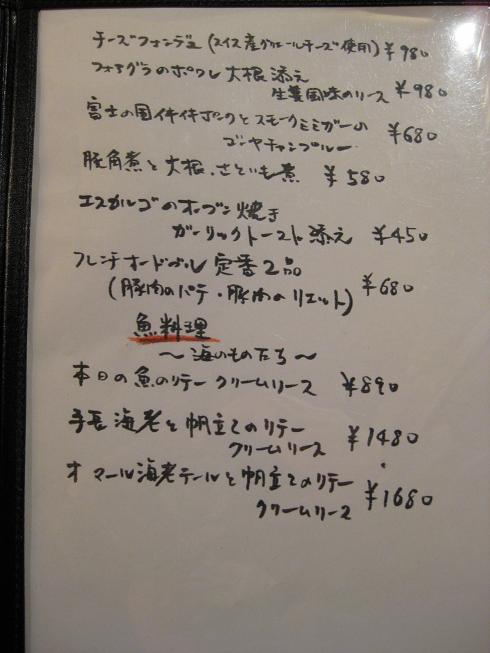 チーズフォンデュ (スイス産グリエールチーズ使用) ¥980
フォアグラのポワレ 大根添え
生姜風味のソース ¥980
富士の国イキイキポークとスモークミミガーの
ゴーヤチャンプルー ¥680
豚角煮と大根、さといも煮 ¥580
エスカルゴのオーブン焼き
ガーリックトースト添え ¥450
フレンチオードブル 定番2品
(豚肉のパテ・豚肉のリエット) ¥680
魚料理
～海のものたち～
本日の魚のソテー クリームソース ¥890
手長海老と帆立てのソテー
クリームソース ¥1480
オマール海老テールと帆立てのソテー
クリームソース ¥1680